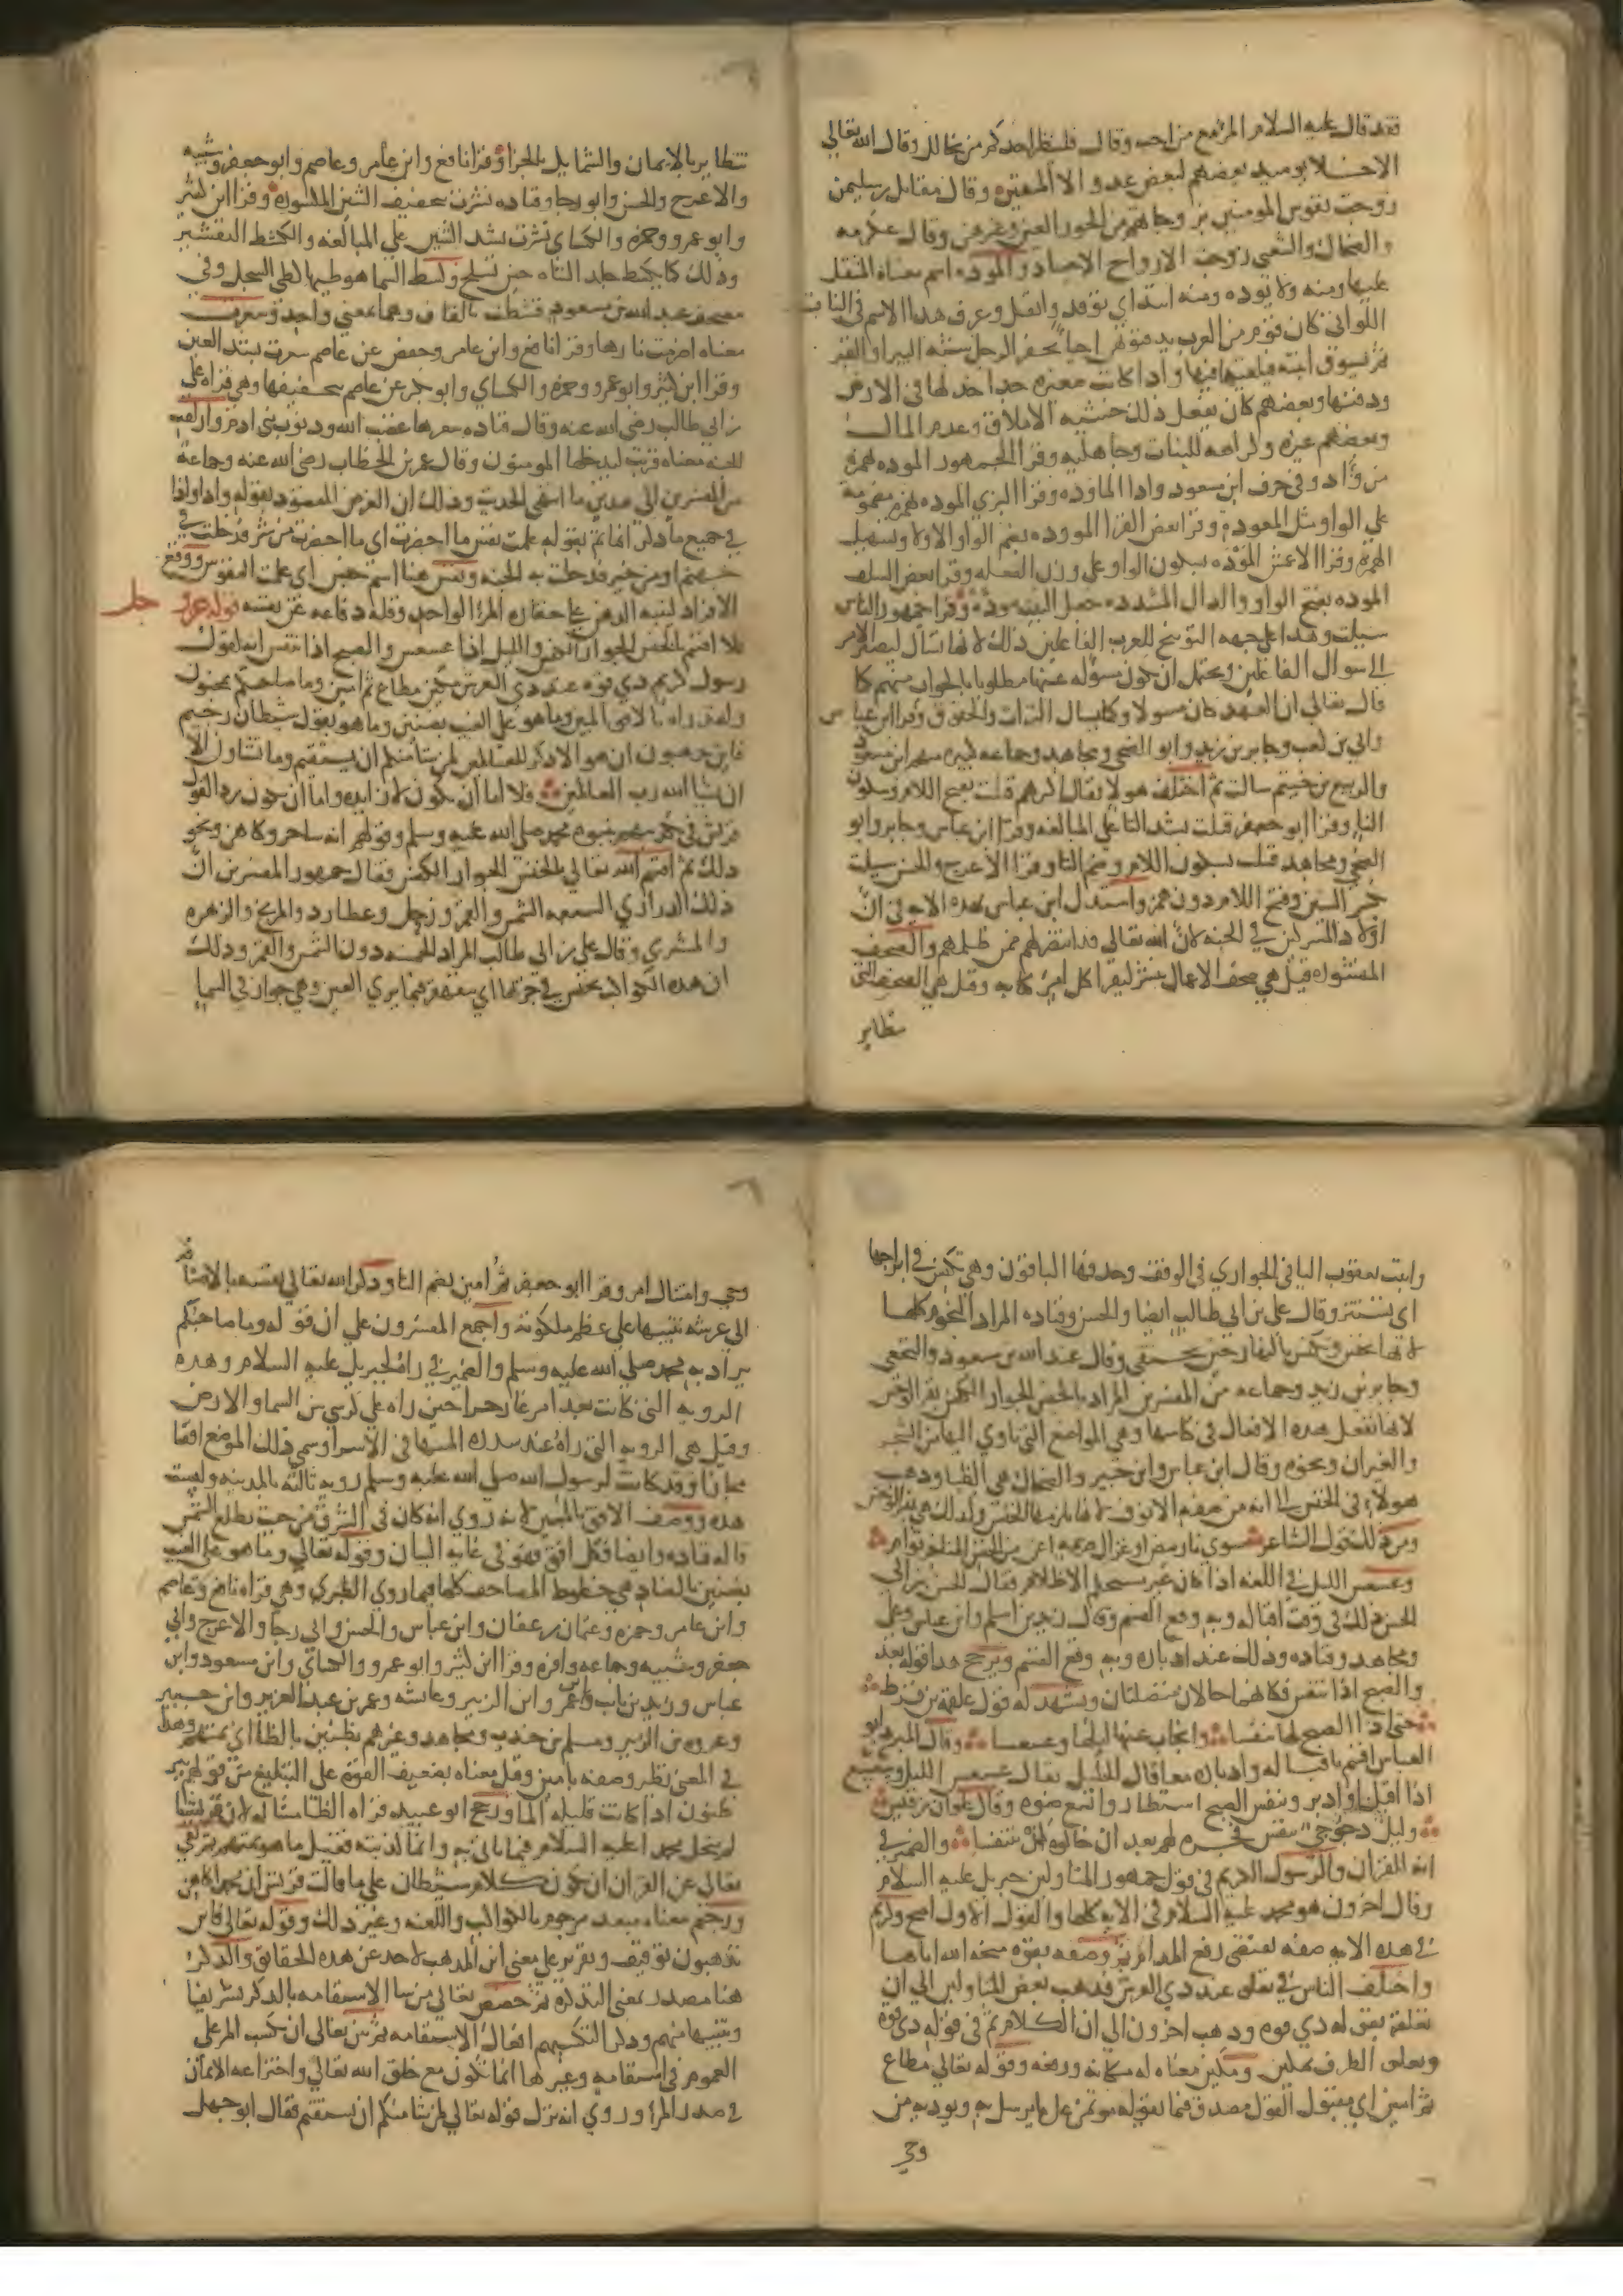 فقد قال عليه السلام المرء مع من احب وقال فلينظر احدكم من يخالل وقال الله تعالى
الاخلا يوميذ بعضهم لبعض عدو الا المتقين وقال مقاتل بن سليمن
زوجت نفوس المومنين بزوجاتهم من الحور العين وغيرهن وقال عكرمه
والضحاك والشعبي زوجت الارواح الاجساد والموده اسم معناه المثقل
عليها ومنه ولا يوده ومنه اتيد اي توقد واثقل وعرف هذا الاسم في البنات
اللواتي كان قوم من العرب يدفنونهن احيا يحفر الرجل شبه البير او القبر
ثم يسوق ابنته فيلقيها فيها واذا كانت صغيره خد لها في الارض
ودفنها وبعضهم كان يفعل ذلك خشيه الاملاق وعدم المال
وبعضهم غيره وكراهه للبنات وجاهليه وقرا الجمهور الموده بهمزه
من وأد وفي حرف ابن مسعود واذا الماوده وقرا البزي الموده بهمزه مضمومة
علي الواو مثل المعوده وقرا بعض القرا الموودة بضم الواو الاولى وتسهيل
الهمزه وقرا الاعمش الموده بسكون الواو على وزن الفعله وقرا بعض السلف
الموده بفتح الواو والدال المشدده جعل البنت مودة وقرا جمهور الناس
سيلت وهذا على جهه التوبيخ للعرب الفاعلين ذلك لانها تسأل ليصير الامر
الي سوال الفاعلين ويحتمل ان تكون مسؤله عنها مطلوبا بالجواب منهم كما
قال تعالى ان العهد كان مسولا وكما يسال التراث والحقوق وقرا ابن عباس
وابي بن كعب وجابر بن زيد وابو الضحى ومجاهد وجماعه كثيره منهم ابن مسعود
والربيع بن خيثم سالت ثم اختلف هولا فقال اكثرهم قتلت بفتح اللام وسكون
التا وقرا ابو جعفر قتلت بشد التا علي المبالغه وقرا ابن عباس وجابر وابو
الضحى ومجاهد قتلت بسكون اللام وضم التا وقرا الاعرج والحسن سيلت
بكسر السين وفتح اللام دون همز واستدل ابن عباس بهذه الايه في ان
اولاد المشركين في الجنه لان الله تعالى قد انتصر لهم ممن ظلمهم والصحف
المنشوره قيل هي صحف الاعمال تنشر ليقرا كل امرئ كتابه وقيل هي الصحف التي
تتطاير
تتطاير بالايمان والشمايل بالجزا وقرا نافع وابن عامر وعاصم وابو جعفر وشيبه
والاعرج والحسن وابو رجا وقتاده نشرت بتخفيف الشين المكسوره وقرا ابن كثير
وابو عمرو وحمزه والكساي نشرت بشد الشين علي المبالغه والكشط التقشير
وذلك كما يكشط جلد الشاه حين تسلخ وكشط السما هو طيها كطي السجل وفي
مصحف عبد الله بن مسعود قشطت بالقاف وهما بمعني واحد وسعرت
معناه اضرمت نارها وقرا نافع وابن عامر وحفص عن عاصم سعرت بشد العين
وقرا ابن كثير وابو عمرو وحمزه والكساي وابو بكر عن عاصم بتخفيفها وهي قراه علي
بن ابي طالب رضي الله عنه وقال قتاده سعرها غضب الله وذنوب بني ادم وازلفت
الجنه معناه قربت ليدخلها المومنون وقال عمر بن الخطاب رضي الله عنه وجماعة
من المفسرين الي هذين ما انتهى الحديث وذلك ان الغرض المقصود بقوله واذا واذا
في جميع ما ذكر انما تم بقوله علمت نفس ما احضرت اي ما احضرت من شر فدخلت به
جهنم او من خير فدخلت به الجنه ونفس هنا اسم جنس اي علمت النفوس ووقع
الافراد لينبه الذهن علي حقاره المرا الواحد وقله دفاعه عن نفسه قوله عز وجل
فلا اقسم بالخنس الجوار الكنس والليل اذا عسعس والصبح اذا تنفس انه لقول
رسول كريم ذي قوه عند ذي العرش مكين مطاع ثم امين وما صاحبكم بمجنون
ولقد راه بالافق المبين وما هو علي الغيب بضنين وما هو بقول شيطان رجيم
فاين تذهبون ان هو الا ذكر للعالمين لمن شا منكم ان يستقيم وما تشاون الا
ان يشا الله رب العالمين فلا اما ان تكون لا زايده واما ان تكون رد القول
قريش في تكذيبهم بنبوه محمد صلي الله عليه وسلم وقولهم انه ساحر وكاهن ونحو
ذلك ثم اقسم الله تعالى بالخنس الجوار الكنس فقال جمهور المفسرين ان
ذلك الدراري السبعه الشمس والقمر وزحل وعطارد والمريخ والزهره
والمشتري وقال علي بن ابي طالب المراد الخمسه دون الشمس والقمر وذلك
ان هذه الكواكب تخنس في جريها اي تتقهقر فيما يري العين وهي جوار في السما
واثبت يعقوب اليا في الجواري في الوقف وحذفها الباقون وهي تكنس في ابراجها
اي تستتر وقال علي بن ابي طالب ايضا والحسن وقتاده المراد النجوم كلها
لانها تخنس وتكنس بالنهار حين تختفي وقال عبد الله بن مسعود والنخعي
وجابر بن زيد وجماعه من المفسرين المراد بالخنس الجوار الكنس بقر الوحش
لانها تفعل هذه الافعال في كناسها وهي المواضع التي تاوي اليها من الشجر
والغيران ونحوه وقال ابن عباس وابن جبير والضحاك هي الظبا وذهب
هولاء في الخنس الي انه من صفه الانوف لانها يلزمها الخنس وكذلك هي بقر الوحش
ومن ذلك قول الشاعر سوي نار بيض او غزال صريمه اغن من الخنس المناخر توام
وعسعس الليل في اللغه اذا كان غير مستحكم الاظلام فقال الحسن بن ابي
الحسن ذلك في وقت اقباله وبه وقع القسم وقال زيد بن اسلم وابن عباس وعلي
ومجاهد وقتاده وذلك عند ادباره وبه وقع القسم ويرجح هذا قوله بعد
والصبح اذا تنفس فكانهما حالان متصلتان ويشهد له قول علقمه بن قرط
حتى اذا الصبح لها تنفسا وانجاب عنها ليلها وعسعسا وقال المبرد ابو
العباس اقسم باقباله وادباره معا قال الخليل يقال عسعس الليل وسعسع
اذا اقبل وادبر وتنفس الصبح استطار واتسع ضوه وقال علوان بن قيس
وليل دجوجي تنفس فجره لهم بعد ان خالوه لن يتنفسا والضمير في
انه للقران والرسول الكريم في قول جمهور المتاولين جبريل عليه السلام
وقال اخرون هو محمد عليه السلام في الايه كلها والقول الاول اصح وكريم
في هذه الايه صفه تقتضي رفع المذام ثم وصفه بقوه منحه الله اياها
واختلف الناس في تعلق عند ذي العرش فذهب بعض المتاولين الي ان
تعلقه بقوله ذي قوه وذهب اخرون الي ان الكلام تم في قوله ذي قوه
وتعلق الظرف بمكين ومكين معناه له مكانه ورفعه وقوله تعالي مطاع
ثم امين اي مقبول القول مصدق فيما يقوله موتمن علي ما يرسل به ويوديه من
وحي
وحي وامتثال امر وقرا ابو جعفر ثم امين بضم الثا وذكر الله تعالي نفسه بالاضافه
الي عرشه تنبيها علي عظم ملكوته واجمع المفسرون علي ان قوله وما صاحبكم
يراد به محمد صلي الله عليه وسلم والضمير في راه لجبريل عليه السلام وهذه
الرويه التي كانت بعد امر غار حرا حين راه علي كرسي بين السما والارض
وقيل هي الرويه التي راه عند سدره المنتهى في الاسرا وسمي ذلك الموضع افقا
مجازا وقد كانت لرسول الله صلي الله عليه وسلم رويه ثالثه بالمدينه وليست
هذه ووصف الافق بالمبين لانه روي انه كان في الشرق من حيث تطلع الشمس
قاله قتاده وايضا فكل افق فهو في غايه البيان وقوله تعالي وما هو علي الغيب
بضنين بالضاد هي خطوط المصاحف كلها فيما روي الطبري وهي قراه نافع وعاصم
وابن عامر وحمزه وعثمان بن عفان وابن عباس والحسن وابي رجا والاعرج وابي
جعفر وشيبه وجماعه وافره وقرا ابن كثير وابو عمرو والكساي وابن مسعود وابن
عباس وزيد بن ثابت وابن عمر وابن الزبير وعايشه وعمر بن عبد العزيز وابن جبير
وعروه بن الزبير ومسلم بن جندب ومجاهد وغيرهم بظنين بالظا اي بمتهم وهذا
في المعنى نظر وصفه بامين وقيل معناه بضعيف القوه علي التبليغ من قولهم بير
ظنون اذا كانت قليله الما ورجح ابو عبيده قراه الظا مشاله لان قريشا
لم تبخل محمدا عليه السلام فيما ياتي به وانما كذبته فقيل ما هو بمتهم ثم نفي
تعالى عن القران ان تكون كلام شيطان علي ما قالت قريش ان محمدا كاهن
ورجيم معناه مبعد مرجوم بالكواكب واللعنه وغير ذلك وقوله تعالى فاين
تذهبون توقيف وتقرير علي معني اين المذهب لاحد عن هذه الحقايق والذكر
هنا مصدر بمعني التذكره ثم خصص تعالى من شا الاستقامه بالذكر تشريفا
وتنبيها منهم وذكر التكسبهم افعال الاستقامه ثم بين تعالى ان تكسب المر علي
العموم في استقامه وغيرها انما تكون مع خلق الله تعالي واختراعه الايمان
في صدر المرا وروي انه نزل قوله تعالى لمن شا منكم ان يستقيم فقال ابو جهل